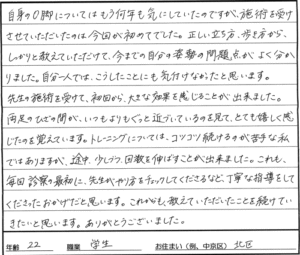 自身のO脚についてはもう何年も気にしていたのですが、施術を受け
させていただいたのは今回が初めてでした。正しい立ち方、歩き方から、
しっかりと教えていただけて、今までの自分の姿勢の問題点がよく分か
りました。自分一人では、こうしたことにも気付けなかったと思います。
先生の施術を受けて、初回から、大きな効果を感じることが出来ました。
両足のひざの間が、いつもよりもぐっと近づいているのを見て、とても嬉しく感
じたのを覚えています。トレーニングについては、コツコツ続けるのが苦手な私
ではありますが、途中、少しづつ、回数を伸ばすことが出来ました。これも、
毎回診察の最初に、先生がやり方をチェックしてくださるなど、丁寧な指導をして
くださったおかげだと思います。これからも、教えていただいたことを続けてい
きたいと思います。ありがとうございました。
年齢 22 職業 学生 お住まい(例、中京区) 北区